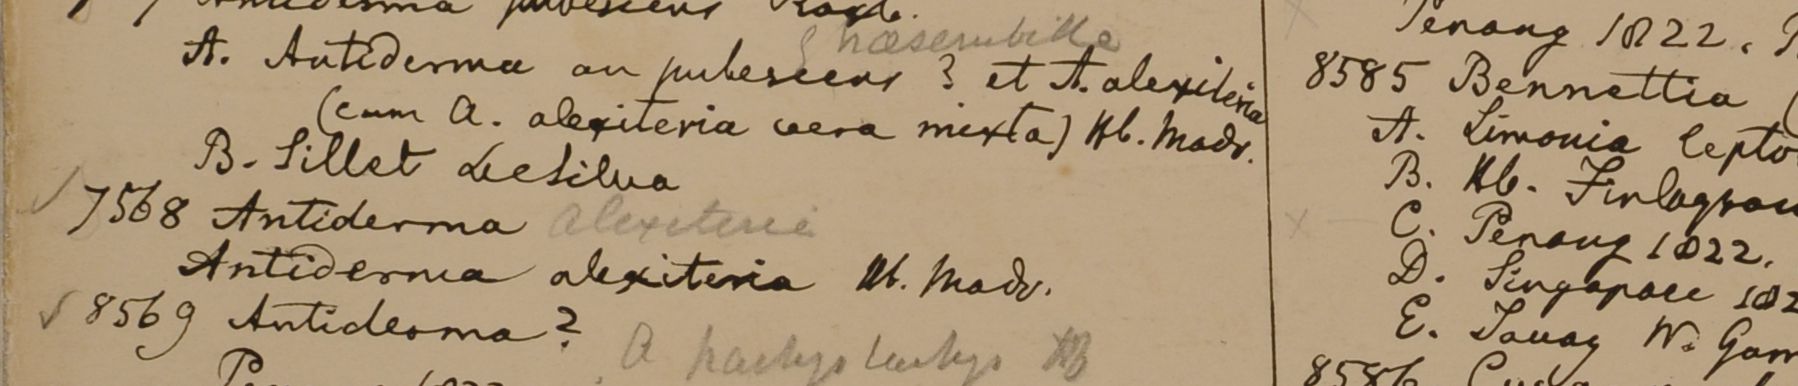 Antidesma pubescens Roxb.
Ghaesembilla
A. Antiderma an pubescens ? et A. alexiteria
(cum A. alexiteria vera mixta) Hb. Madr.
B. Sillet DeSilva
7568 Antiderma alexiteria
Antiderma alexiteria Hb. Madr.
8569 Antidesma ?
A pachystachys HB
Penang 1822.
8585 Bennettia (
A. Limonia lepto
B. Hb. Finlayson
C. Penang 1822.
D. Singapore 182
E. Tavoy W. Gom
8586